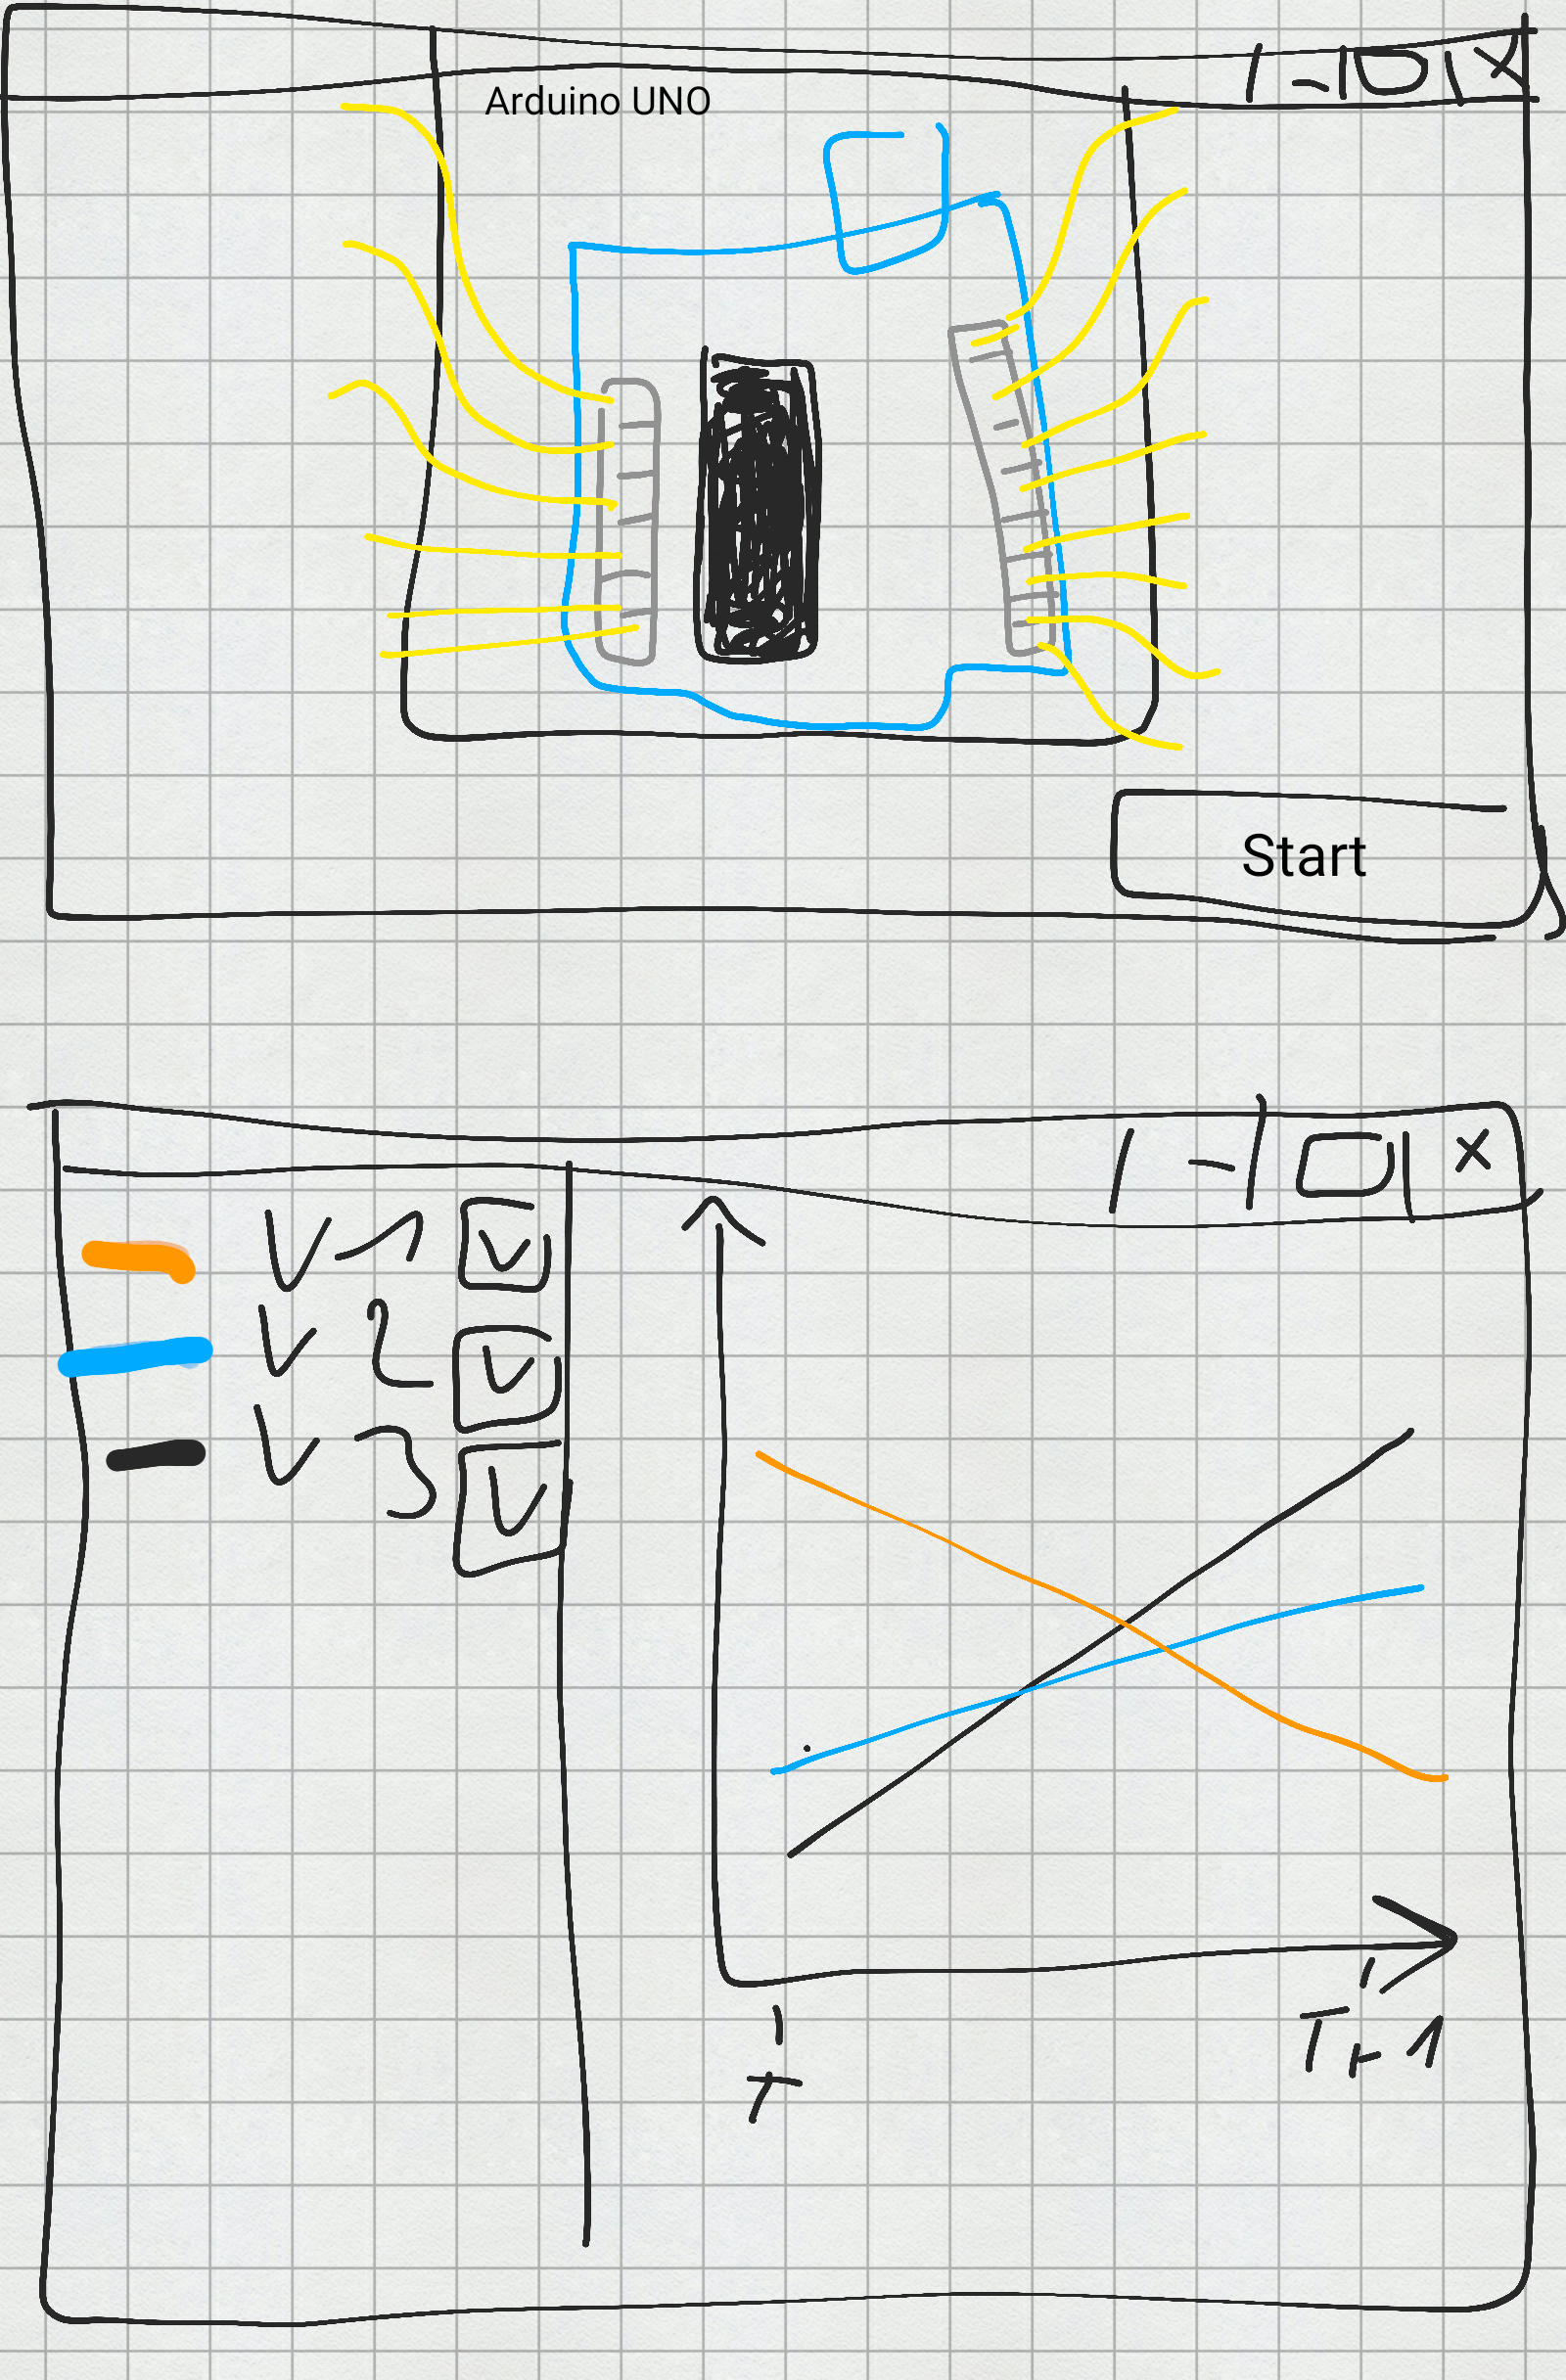 Arduino UNO
Start
V1
V2
V3
T
T+1